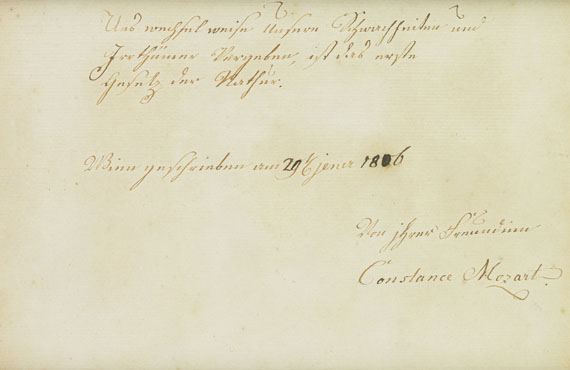 Uns wechsel weise unsere Schwachheiten und
Irrthümer Vergeben, ist das erste
Gesetz der Nathur.
Wien geschrieben am 29t jener 1806
Von ihrer Freundinn
Constance Mozart